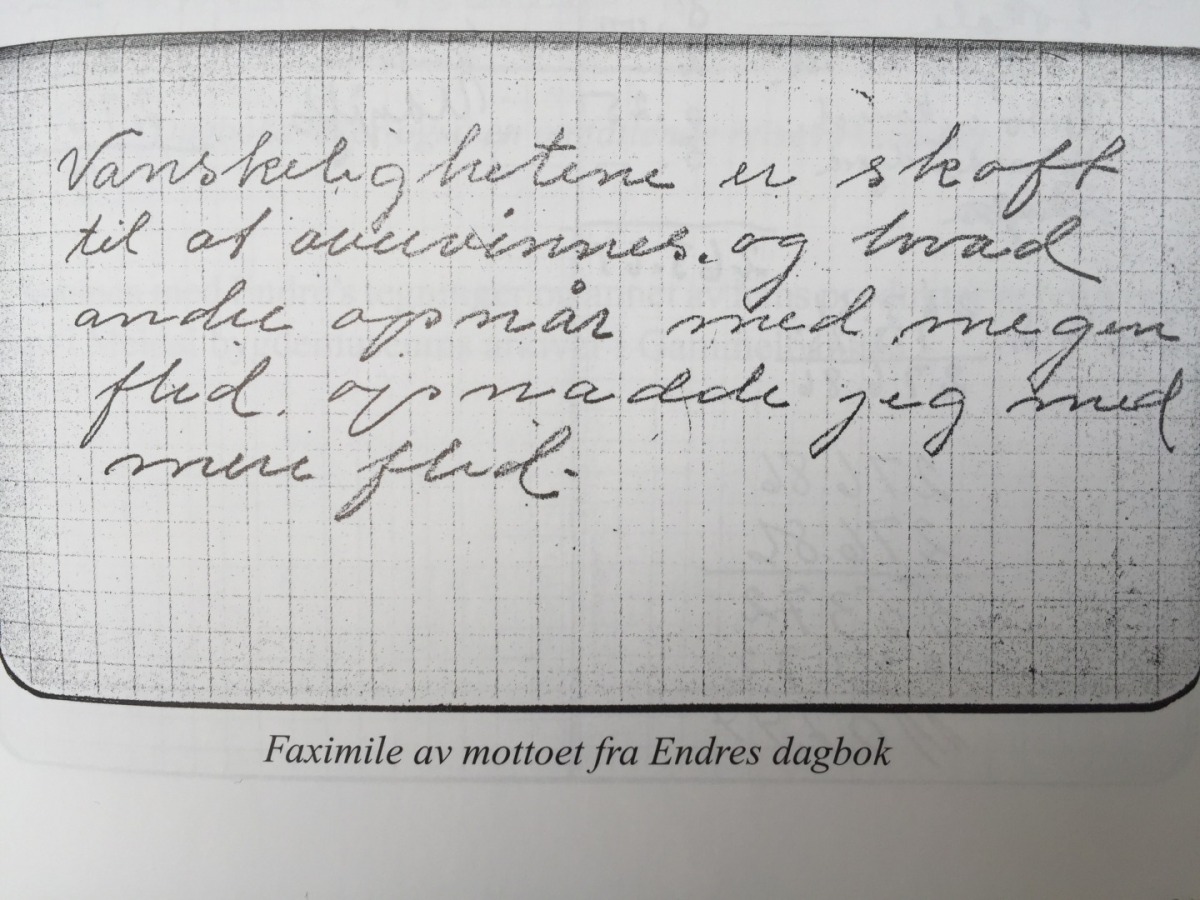 Vanskelighetene er skapt
til at overvinnes. og hvad
andre opnår med megen
flid. opnadde jeg med
mere flid.
Faximile av mottoet fra Endres dagbok